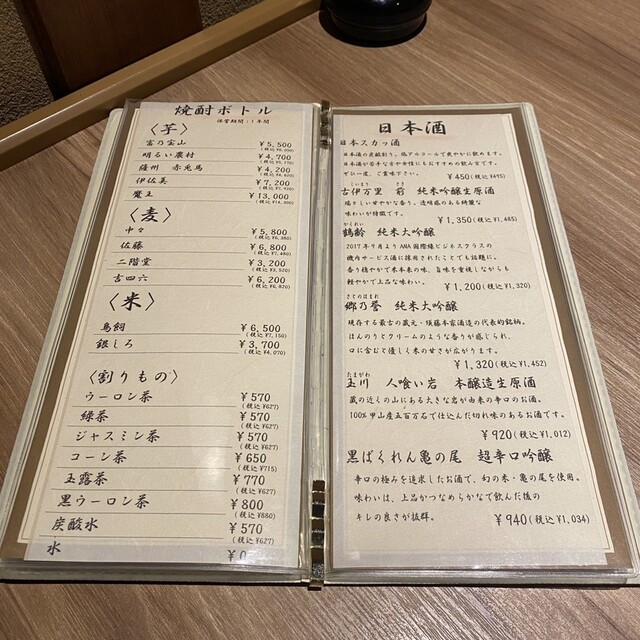 焼酎ボトル
保管期間:1年間
〈芋〉
富乃宝山 ¥5,500
(税込¥6,050)
明るい農村 ¥4,700
(税込¥5,170)
薩州 赤兎馬 ¥4,200
(税込¥4,620)
伊佐美 ¥7,200
(税込¥7,920)
魔王 ¥13,000
(税込¥14,300)
〈麦〉
中々 ¥5,800
(税込¥6,380)
佐藤 ¥6,800
(税込¥7,480)
二階堂 ¥3,200
(税込¥3,520)
吉四六 ¥6,200
(税込¥6,820)
〈米〉
鳥飼 ¥6,500
(税込¥7,150)
銀しろ ¥3,700
(税込¥4,070)
〈割りもの〉
ウーロン茶 ¥570
(税込¥627)
緑茶 ¥570
(税込¥627)
ジャスミン茶 ¥570
(税込¥627)
コーン茶 ¥650
(税込¥715)
玉露茶 ¥770
(税込¥627)
黒ウーロン茶 ¥800
(税込¥880)
炭酸水 ¥570
(税込¥627)
水 ¥0
日本酒
日本スカッ酒
日本酒の炭酸割り。低アルコールで爽やかに飲めます。
日本酒が苦手な方や女性にもおすすめの飲み方です。
ぜひ一度、ご賞味下さい。
¥450(税込¥495)
こいまり さき
古伊万里 前 純米吟醸生原酒
瑞々しい甘やかな香り。透明感のある綺麗な
味わいが特徴です。
¥1,350(税込¥1,485)
かくれい
鶴齢 純米大吟醸
2017年9月よりANA国際線ビジネスクラスの
機内サービス酒に採用されたことでも話題に。
香り穏やかで米本来の味、旨味を重視しながらも
軽やかで上品な味わい。
¥1,200(税込¥1,320)
さとのほまれ
郷乃誉 純米大吟醸
現存する最古の蔵元・須藤本家酒造の代表的銘柄。
ほんのりとクリームのような香りが感じられ、
口に含むと優しく米の甘さが広がります。
¥1,320(税込¥1,452)
たまがわ
玉川 人喰い岩 本醸造生原酒
蔵の近くの山にある大きな岩が由来の辛口のお酒。
100%甲山産五百万石で仕込んだ切れ味のあるお酒です。
¥920(税込¥1,012)
黒ばくれん亀の尾 超辛口吟醸
辛口の極みを追求したお酒で、幻の米・亀の尾を使用。
味わいは、上品かつなめらかなで飲んだ後の
キレの良さが抜群。
¥940(税込¥1,034)